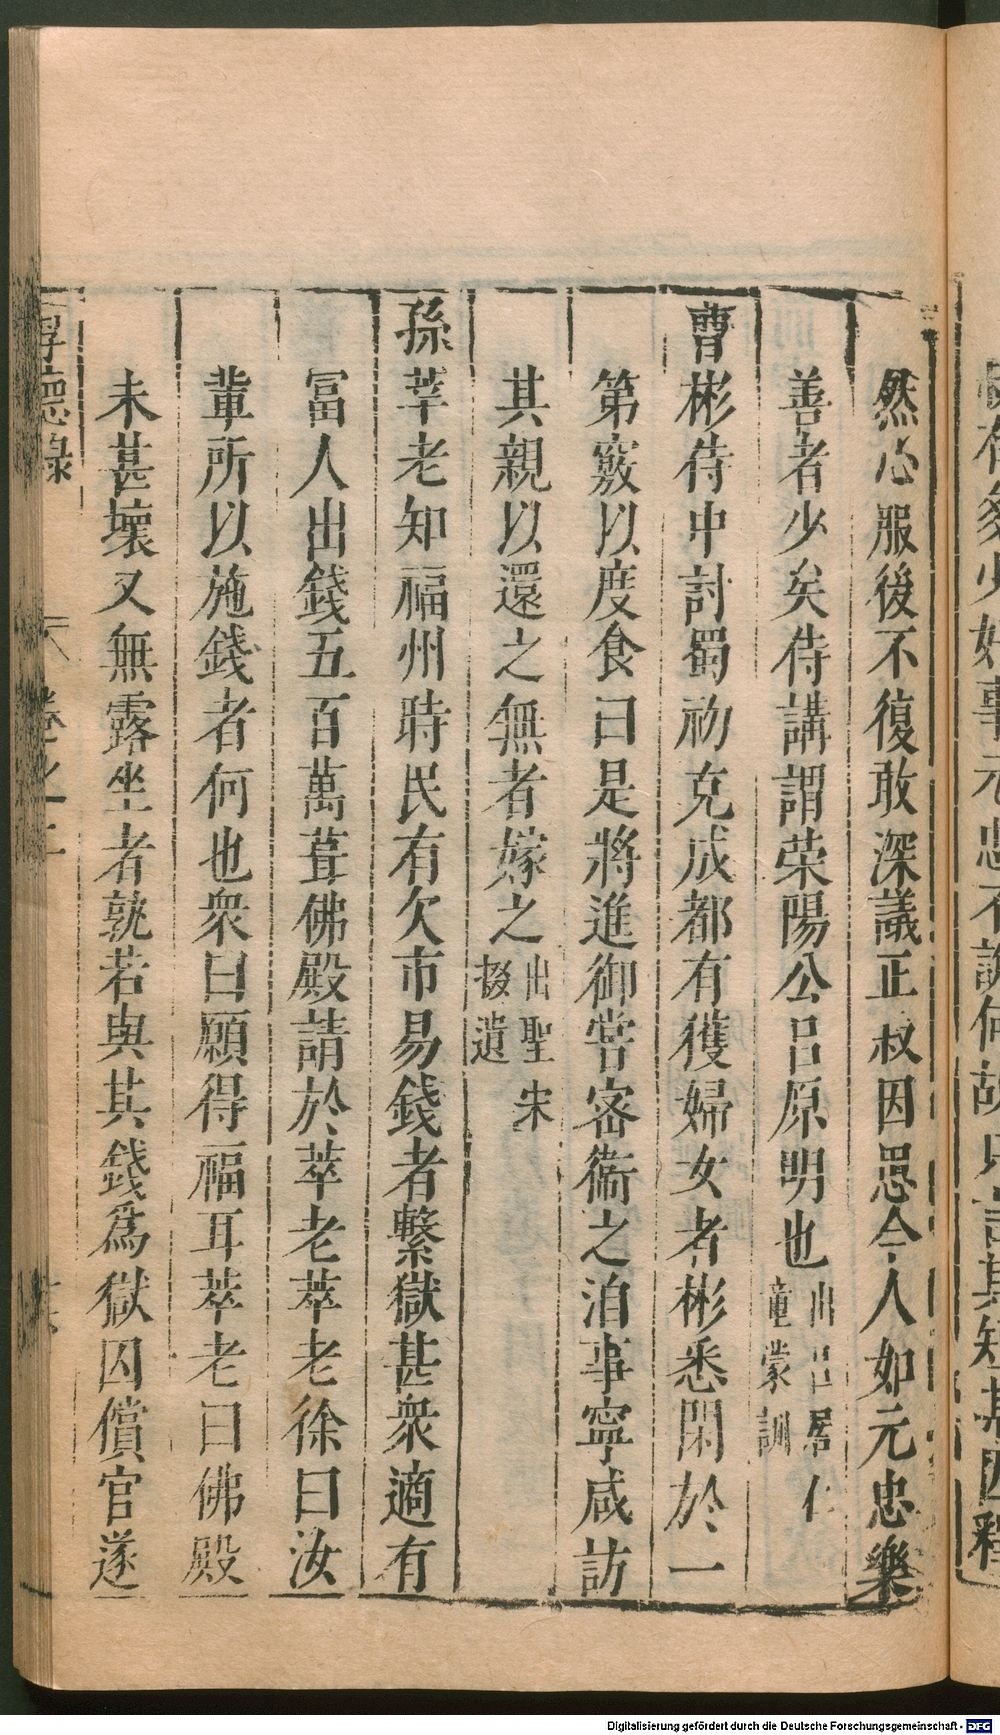 然心服後不復敢深議正叔因思今人如元忠樂
善者少矣侍講謂荣陽公吕原明也出吕居仁童蒙訓
曹彬侍中討蜀初克成都有獲婦女者彬悉閉於一
第竅以度食曰是將進御嘗密衞之洎事寧咸訪
其親以還之無者嫁之出聖宋掇遺
孫莘老知福州時民有欠市易錢者繫獄甚衆適有
冨人出錢五百萬葺佛殿請於莘老莘老徐曰汝
軰所以施錢者何也衆曰願得福耳莘老曰佛殿
未甚壞又無露坐者孰若與其錢爲獄囚償官遂
厚德錄
卷之二
Digitalisierung gefördert durch die Deutsche Forschungsgemeinschaft - DFG